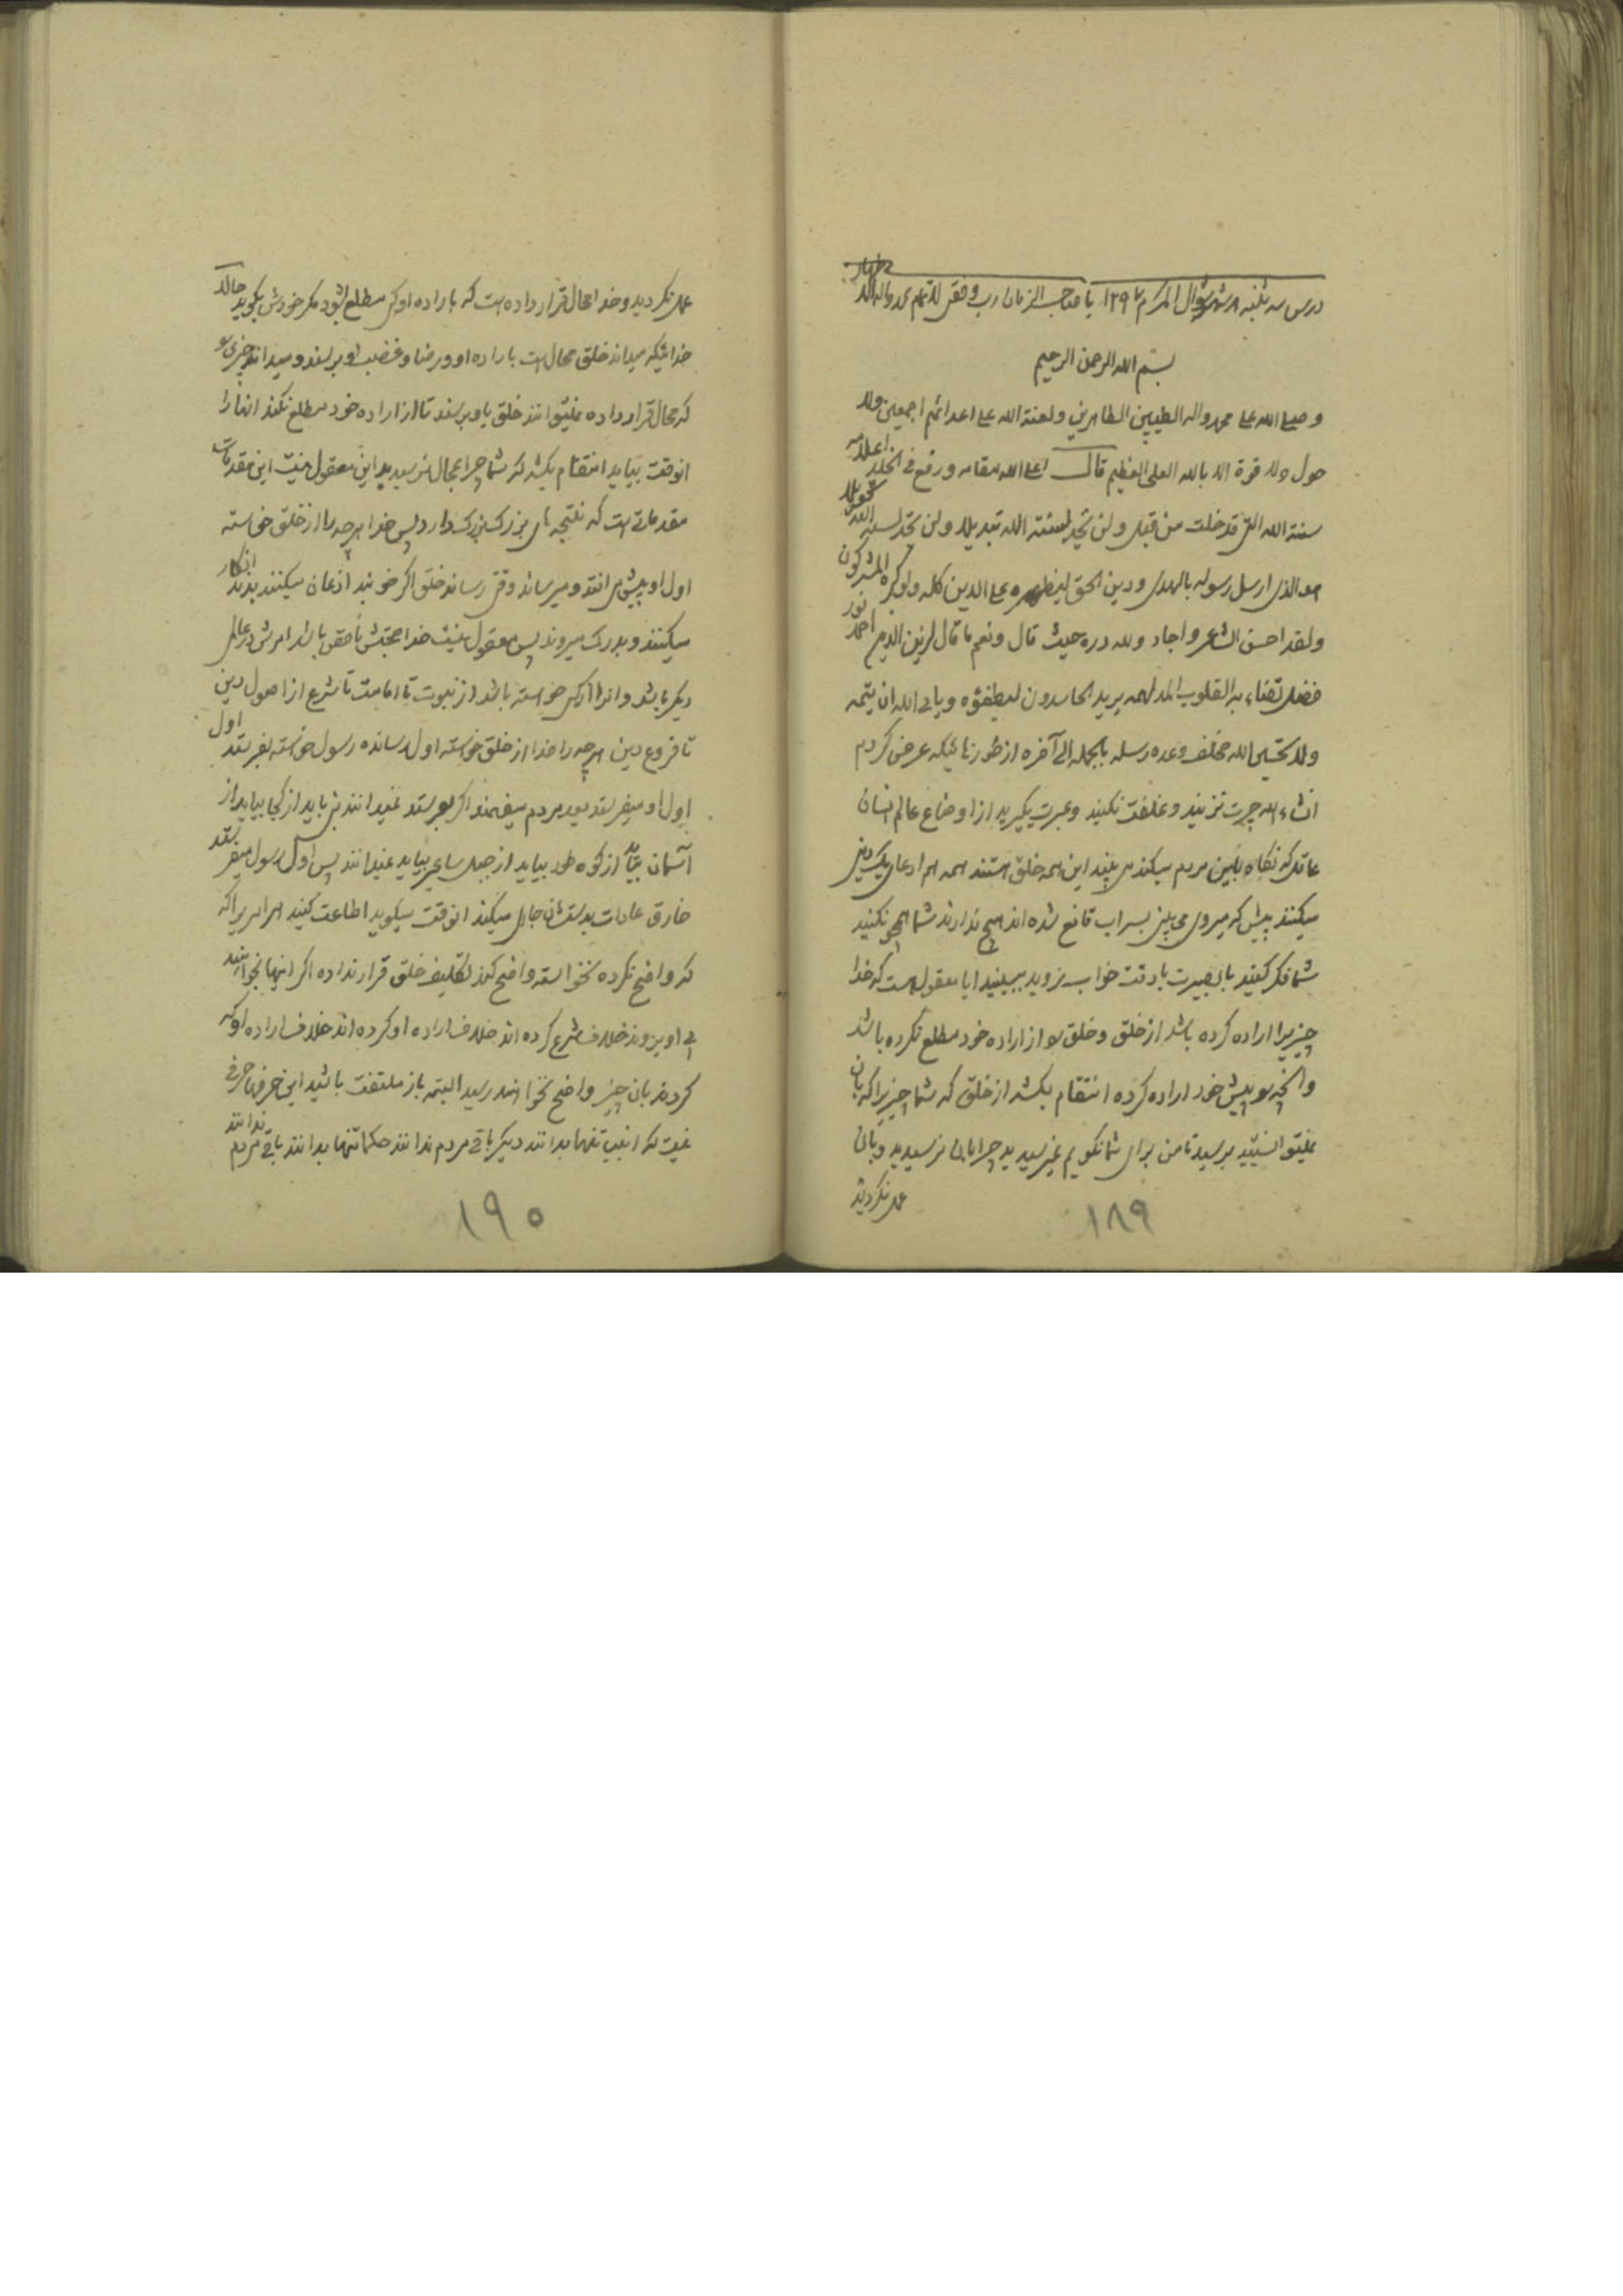 درس سه شنبه ۸ شهر شوال المکرم ۱۲۹۷ یا صاحب الزمان رب وفقنی للاتمام بمحمد واله الاطهار
بسم الله الرحمن الرحیم
و صلی الله علی محمد واله الطیبین الطاهرین و لعنة الله علی اعدائهم اجمعین ولا
حول ولا قوة الا بالله العلی العظیم قال اعلی الله مقامه ورفع فی الخلد اعلامه
سنة الله التی قد خلت من قبل و لن تجد لسنة الله تبدیلا و لن تجد لسنة الله تحویلا
هو الذی ارسل رسوله بالهدی و دین الحق لیظهره علی الدین کله ولو کره المشرکون
ولقد احسن الشاعر و اجاد ولله دره حیث قال و نعم ما قال لزین الدین احمد نور
فضل تضاء به القلوب المدلهمه یرید الحاسدون لیطفؤه و یابی الله ان یتمه
ولا تحسبن الله مخلف وعده رسله بالجمله الی آخره از طور زنائیکه عرض کردم
انشاء الله چرت نزنید و غفلت نکنید و عبرت بگیرید از اوضاع عالم انسان
عاقل که نگاه باین مردم میکند می بیند این همه خلق هستند همه هم ادعای یک دینی
میکنند پیش که میروی می بینی بسراب قانع شده اند هیچ ندارند شما همچو نکنید
شما فکر کنید با بصیرت با دقت خواب نروید ببینید ایا معقول است که خدا
چیزیرا اراده کرده باشد از خلق و خلق را از اراده خود مطلع نکرده باشد
و انچه را پیش خود اراده کرده انتقام بکشد از خلق که شما چیزیرا که بان
نمیتوانستید برسید تا من برای شما نگویم نمیرسیدید چرا بان نرسیدید و بان
عمل نکردید
۱۸۹
عمل نکردید و خدا محال قرار داده است که باراده او کسی مطلع بشود مگر خودش بگوید حالا
خدائیکه میداند خلق محال است باراده او و رضا و غضب او برسند و میداند چیزی را
که محال قرار داده نمیتوانند خلق باو برسند تا از اراده خود مطلع نکند انها را
انوقت بیاید انتقام بکشد که شما چرا بمحال نرسیدید این معقول نیست این مقدمات
مقدماتی است که نتیجه های بزرگ بزرگ دارد پس خدا هرچه را از خلق خواسته
اول او پیش می افتد و میرساند وقتی رساند خلق اگر خوبند اذعان میکنند بدند انکار
میکنند و بدرک میروند پس معقول نیست خدا حجتش ناقص باشد امرش در عالم
دیگر باشد و انرا از کسی خواسته باشد از نبوت تا امامت تا شرع از اصول دین
تا فروع دین هرچه را خدا از خلق خواسته اول رسانده رسول خواسته بفرستد اول
اول او میفرستد بعد مردم میفهمند اگر نفرستد نمیدانند نبی باید از کجا بیاید از
آسمان بیاید از کوه طور بیاید از جبل ساعیر بیاید نمیدانند پس اول رسول میفرستد
خارق عادات بدستشان جاری میکند انوقت میگوید اطاعت کنید هر امریرا که
که واضح نکرده نخواسته واضح کند تکلیف خلق قرار نداده اگر اینها بخواهند
پی او بروند خلاف شرع کرده اند خلاف اراده او کرده اند خلاف اراده او که
کردند بان چیز واضح نخواهند رسید البته باز ملتفت باشید این حرفها حرفی
نیست که انبیا تنها بدانند دیگر باقی مردم ندانند حکما تنها بدانند باقی مردم ندانند
۱۹۰